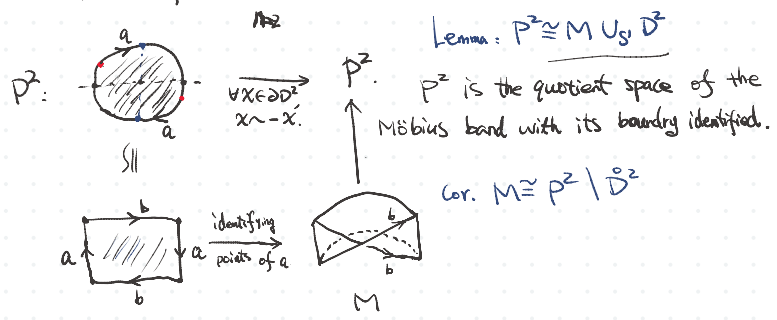 Lemma: P² ≅ M ∪_S¹ D²
a
P²:
a
∀x∈∂D²
x∼-x.
P².
P² is the quotient space of the
Möbius band with its boundry identified.
Cor. M ≅ P² \ D̊²
b
a
a
b
identifying
points of a
b
b
M